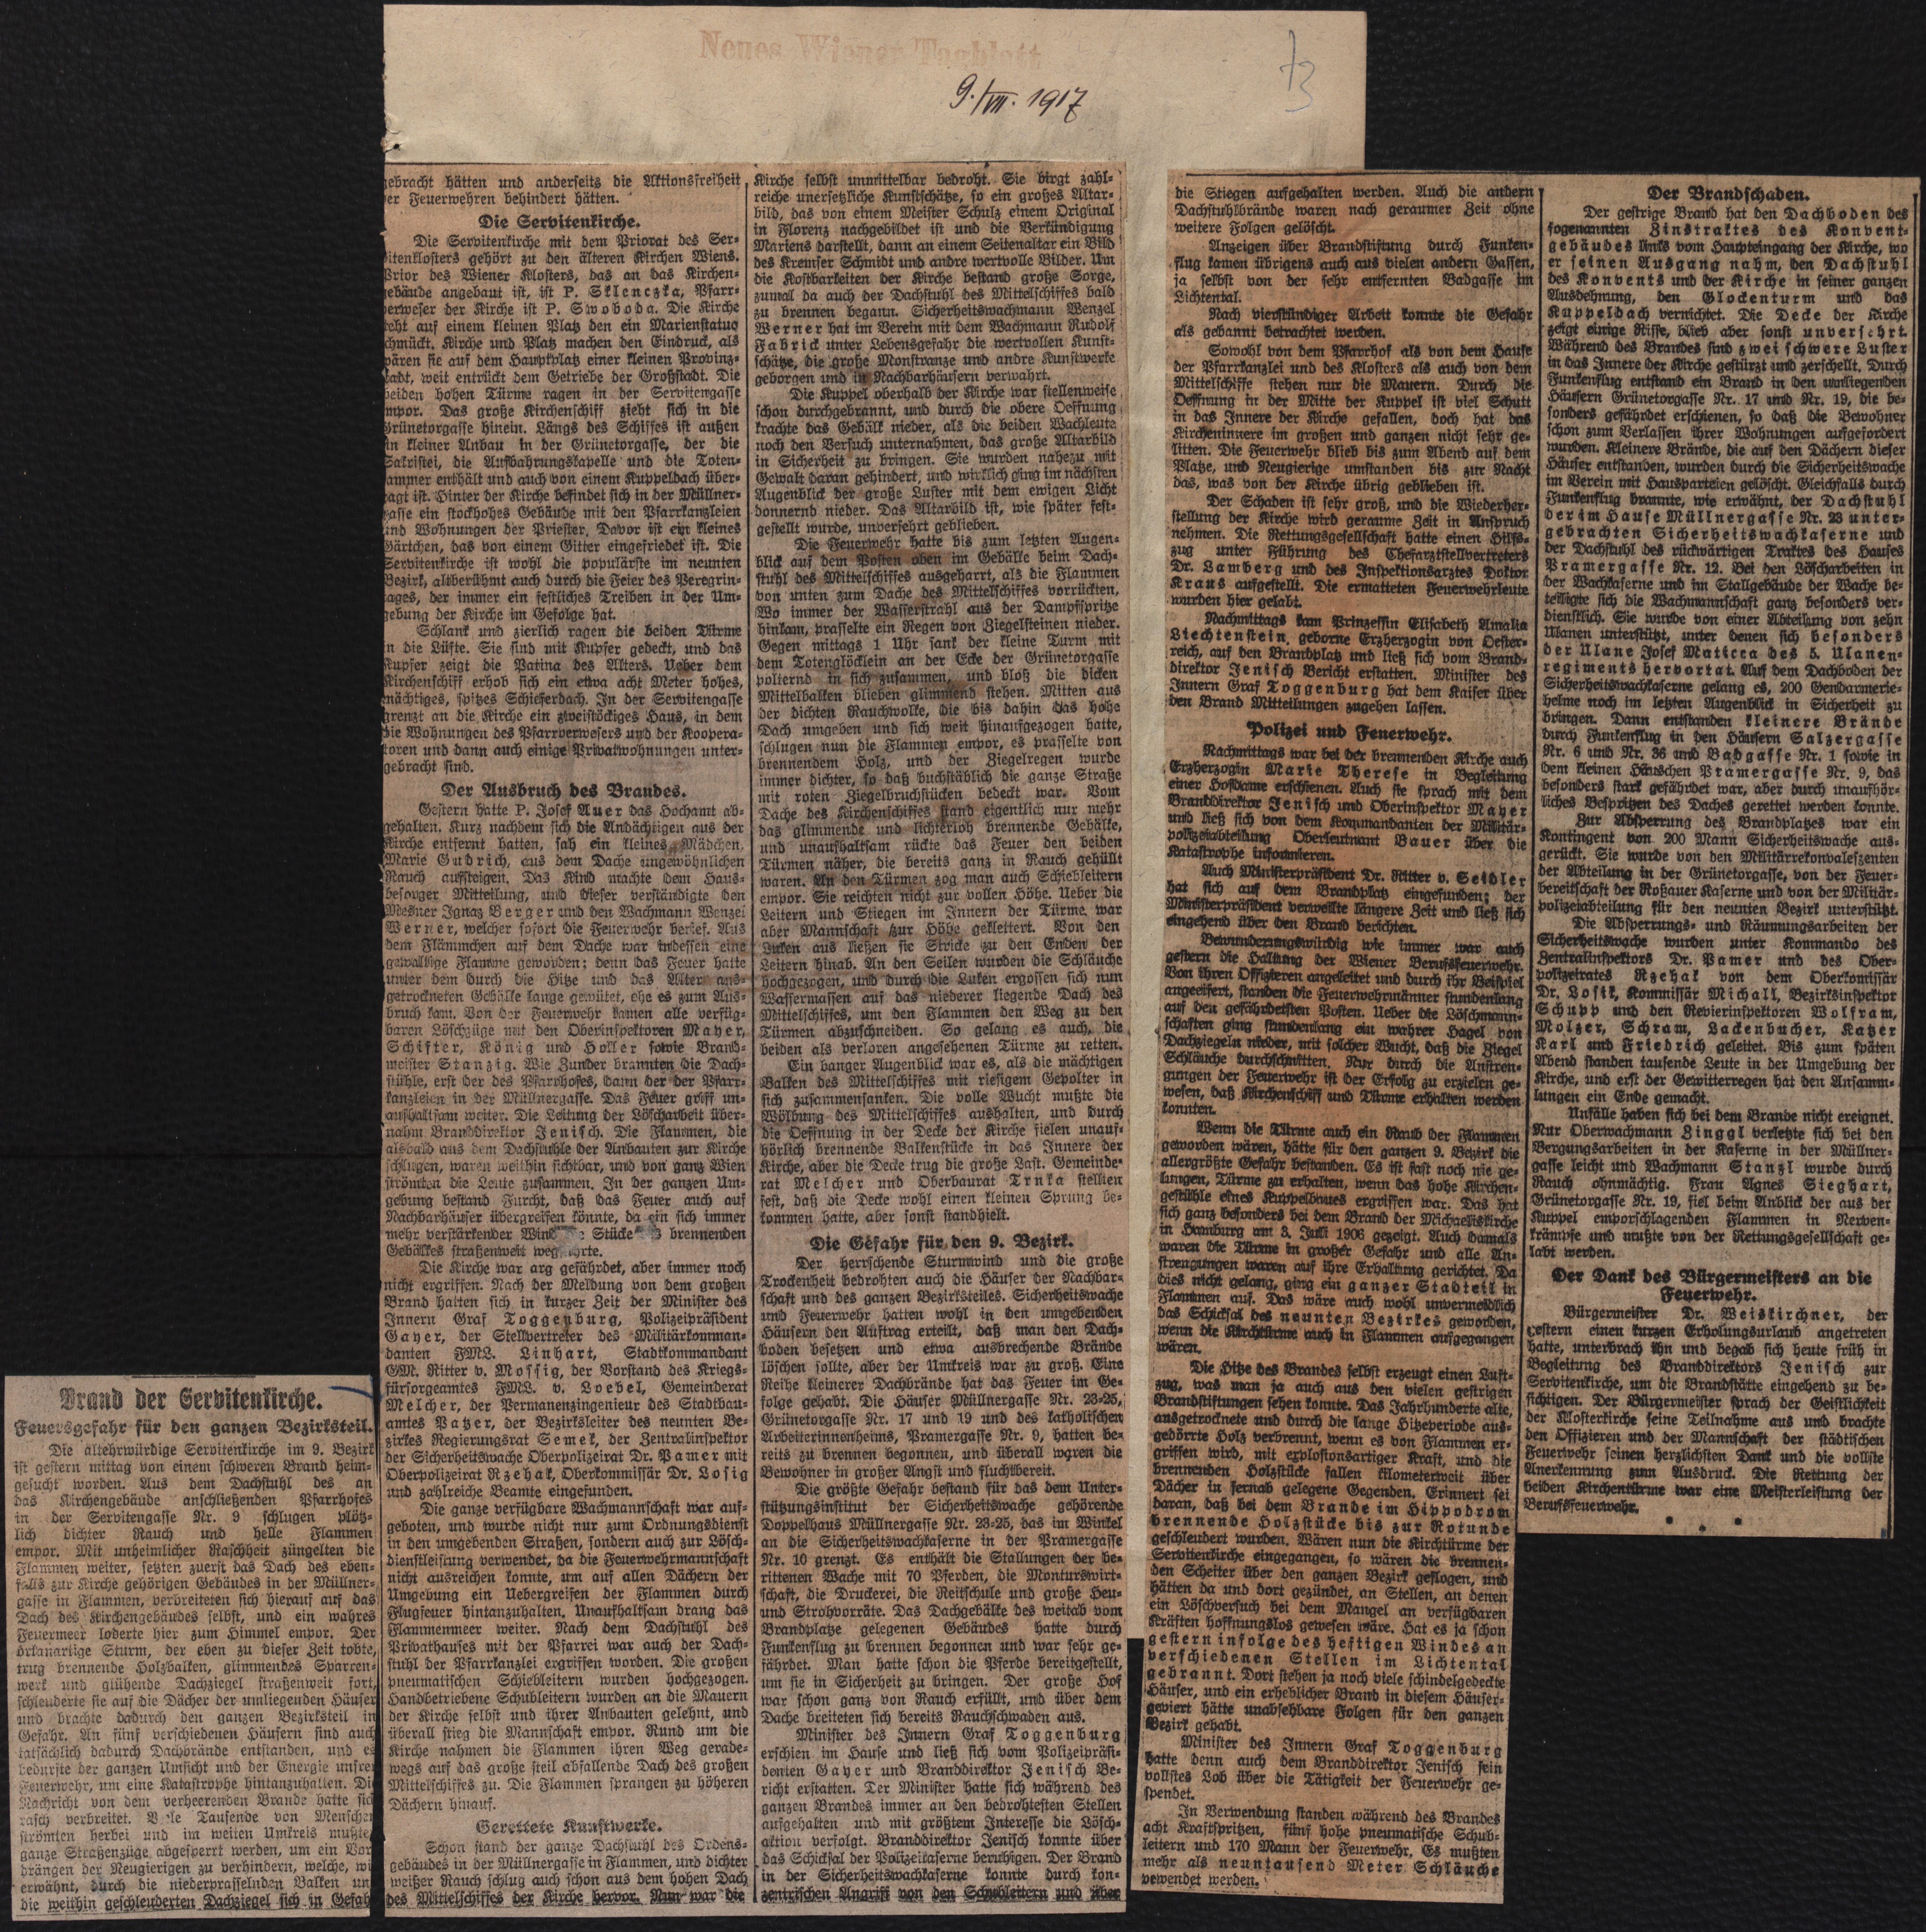 Neues Wiener Tagblatt
73
9./VII. 1917
Brand der Servitenkirche.
Feuersgefahr für den ganzen Bezirksteil.
Die altehrwürdige Servitenkirche im 9. Bezirk
ist gestern mittag von einem schweren Brand heim-
gesucht worden. Aus dem Dachstuhl des an
das Kirchengebäude anschließenden Pfarrhofes
in der Servitengasse Nr. 9 schlugen plötz-
lich dichter Rauch und helle Flammen
empor. Mit unheimlicher Raschheit züngelten die
Flammen weiter, setzten zuerst das Dach des eben-
falls zur Kirche gehörigen Gebäudes in der Müllner-
gasse in Flammen, verbreiteten sich hierauf auf das
Dach des Kirchengebäudes selbst, und ein wahres
Feuermeer loderte hier zum Himmel empor. Der
orkanartige Sturm, der eben zu dieser Zeit tobte,
trug brennende Holzbalken, glimmendes Sparren-
werk und glühende Dachziegel straßenweit fort,
schleuderte sie auf die Dächer der umliegenden Häuser
und brachte dadurch den ganzen Bezirksteil in
Gefahr. An fünf verschiedenen Häusern sind auch
tatsächlich dadurch Dachbrände entstanden, und es
bedurfte der ganzen Umsicht und der Energie unsrer
Feuerwehr, um eine Katastrophe hintanzuhalten. Die
Nachricht von dem verheerenden Brande hatte sich
rasch verbreitet. Viele Tausende von Menschen
strömten herbei und im weiten Umkreis mußte
ganze Straßenzüge abgesperrt werden, um ein Vor
drängen der Neugierigen zu verhindern, welche, wi
erwähnt, durch die niederprasselnden Balken un
die weithin geschleuderten Dachziegel sich in Gefah
gebracht hätten und anderseits die Aktionsfreiheit
er Feuerwehren behindert hätten.
Die Servitenkirche.
Die Servitenkirche mit dem Priorat des Ser-
vitenklosters gehört zu den älteren Kirchen Wiens.
Prior des Wiener Klosters, das an das Kirchen-
gebäude angebaut ist, ist P. Sklenczka, Pfarr-
verweser der Kirche ist P. Swoboda. Die Kirche
teht auf einem kleinen Platz den ein Marienstatue
chmückt. Kirche und Platz machen den Eindruck, als
wären sie auf dem Hauptplatz einer kleinen Provinz-
tadt, weit entrückt dem Getriebe der Großstadt. Die
beiden hohen Türme ragen in der Servitengasse
mpor. Das große Kirchenschiff zieht sich in die
Grünetorgasse hinein. Längs des Schiffes ist außen
in kleiner Anbau in der Grünetorgasse, der die
Sakristei, die Aufbahrungskapelle und die Toten-
ammer enthält und auch von einem Kuppeldach über-
agt ist. Hinter der Kirche befindet sich in der Müllner-
gasse ein stockhohes Gebäude mit den Pfarrkanzleien
und Wohnungen der Priester. Davor ist ein kleines
Gärtchen, das von einem Gitter eingefriedet ist. Die
Servitenkirche ist wohl die populärste im neunten
Bezirk, altberühmt auch durch die Feier des Peregrin-
tages, der immer ein festliches Treiben in der Um-
gebung der Kirche im Gefolge hat.
Schlank und zierlich ragen die beiden Türme
in die Lüfte. Sie sind mit Kupfer gedeckt, und das
Kupfer zeigt die Patina des Alters. Ueber dem
Kirchenschiff erhob sich ein etwa acht Meter hohes,
mächtiges, spitzes Schieferdach. In der Servitengasse
grenzt an die Kirche ein zweistöckiges Haus, in dem
die Wohnungen des Pfarrverwesers und der Koopera-
toren und dann auch einige Privatwohnungen unter-
gebracht sind.
Der Ausbruch des Brandes.
Gestern hatte P. Josef Auer das Hochamt ab-
gehalten. Kurz nachdem sich die Andächtigen aus der
Kirche entfernt hatten, sah ein kleines Mädchen,
Marie Gudrich, aus dem Dache ungewöhnlichen
Rauch aufsteigen. Das Kind machte dem Haus-
besorger Mitteilung, und dieser verständigte den
Mesner Ignaz Berger und den Wachmann Wenzel
Werner, welcher sofort die Feuerwehr berief. Aus
dem Flämmchen auf dem Dache war indessen eine
gewaltige Flamme geworden; denn das Feuer hatte
unter dem durch die Hitze und das Alter aus-
getrockneten Gebälke lange gewütet, ehe es zum Aus-
bruch kam. Von der Feuerwehr kamen alle verfüg-
baren Löschzüge mit den Oberinspektoren Mayer,
Schifter, König und Holler sowie Brand-
meister Stanzig. Wie Zunder brannten die Dach-
stühle, erst der des Pfarrhofes, dann der der Pfarr-
kanzleien in der Müllnergasse. Das Feuer griff un-
aufhaltsam weiter. Die Leitung der Löscharbeit über-
nahm Branddirektor Jenisch. Die Flammen, die
alsbald aus dem Dachstuhle der Anbauten zur Kirche
schlugen, waren weithin sichtbar, und von ganz Wien
strömten die Leute zusammen. In der ganzen Um-
gebung bestand Furcht, daß das Feuer auch auf
Nachbarhäuser übergreifen könnte, da ein sich immer
mehr verstärkender Wind Stücke brennenden
Gebälkes straßenweit wegführte.
Die Kirche war arg gefährdet, aber immer noch
nicht ergriffen. Nach der Meldung von dem großen
Brand hatten sich in kurzer Zeit der Minister des
Innern Graf Toggenburg, Polizeipräsident
Gayer, der Stellvertreter des Militärkomman-
danten FML. Linhart, Stadtkommandant
GM. Ritter v. Mossig, der Vorstand des Kriegs-
fürsorgeamtes FML. v. Loebel, Gemeinderat
Melcher, der Permanenzingenieur des Stadtbau-
amtes Patzer, der Bezirksleiter des neunten Be-
zirkes Regierungsrat Semek, der Zentralinspektor
der Sicherheitswache Oberpolizeirat Dr. Pamer mit
Oberpolizeirat Rzehak, Oberkommissär Dr. Losig
und zahlreiche Beamte eingefunden.
Die ganze verfügbare Wachmannschaft war auf-
geboten, und wurde nicht nur zum Ordnungsdienst
in den umgebenden Straßen, sondern auch zur Lösch-
dienstleistung verwendet, da die Feuerwehrmannschaft
nicht ausreichen konnte, um auf allen Dächern der
Umgebung ein Uebergreifen der Flammen durch
Flugfeuer hintanzuhalten. Unaufhaltsam drang das
Flammenmeer weiter. Nach dem Dachstuhl des
Privathauses mit der Pfarrei war auch der Dach-
stuhl der Pfarrkanzlei ergriffen worden. Die großen
pneumatischen Schiebleitern wurden hochgezogen.
Handbetriebene Schubleitern wurden an die Mauern
der Kirche selbst und ihrer Anbauten gelehnt, und
überall stieg die Mannschaft empor. Rund um die
Kirche nahmen die Flammen ihren Weg gerade-
wegs auf das große steil abfallende Dach des großen
Mittelschiffes zu. Die Flammen sprangen zu höheren
Dächern hinauf.
Gerettete Kunstwerke.
Schon stand der ganze Dachstuhl des Ordens-
gebäudes in der Müllnergasse in Flammen, und dichter
weißer Rauch schlug auch schon aus dem hohen Dach
des Mittelschiffes der Kirche hervor. Nun war die
Kirche selbst unmittelbar bedroht. Sie birgt zahl-
reiche unersetzliche Kunstschätze, so ein großes Altar-
bild, das von einem Meister Schulz einem Original
in Florenz nachgebildet ist und die Verkündigung
Mariens darstellt, dann an einem Seitenaltar ein Bild
des Kremser Schmidt und andre wertvolle Bilder. Um
die Kostbarkeiten der Kirche bestand große Sorge,
zumal da auch der Dachstuhl des Mittelschiffes bald
zu brennen begann. Sicherheitswachmann Wenzel
Werner hat im Verein mit dem Wachmann Rudolf
Fabrick unter Lebensgefahr die wertvollen Kunst-
schätze, die große Monstranze und andre Kunstwerke
geborgen und in Nachbarhäusern verwahrt.
Die Kuppel oberhalb der Kirche war stellenweise
schon durchgebrannt, und durch die obere Oeffnung
krachte das Gebälk nieder, als die beiden Wachleute
noch den Versuch unternahmen, das große Altarbild
in Sicherheit zu bringen. Sie wurden nahezu mit
Gewalt daran gehindert, und wirklich ging im nächsten
Augenblick der große Luster mit dem ewigen Licht
donnernd nieder. Das Altarbild ist, wie später fest-
gestellt wurde, unversehrt geblieben.
Die Feuerwehr hatte bis zum letzten Augen-
blick auf dem Posten oben im Gebälke beim Dach-
stuhl des Mittelschiffes ausgeharrt, als die Flammen
von unten zum Dache des Mittelschiffes vorrückten.
Wo immer der Wasserstrahl aus der Dampfspritze
hinkam, prasselte ein Regen von Ziegelsteinen nieder.
Gegen mittags 1 Uhr sank der kleine Turm mit
dem Totenglöcklein an der Ecke der Grünetorgasse
polternd in sich zusammen, und bloß die dicken
Mittelbalken blieben glimmend stehen. Mitten aus
der dichten Rauchwolke, die bis dahin das hohe
Dach umgeben und sich weit hinaufgezogen hatte,
schlugen nun die Flammen empor, es prasselte von
brennendem Holz, und der Ziegelregen wurde
immer dichter, so daß buchstäblich die ganze Straße
mit roten Ziegelbruchstücken bedeckt war. Vom
Dache des Kirchenschiffes stand eigentlich nur mehr
das glimmende und lichterloh brennende Gebälke,
und unaufhaltsam rückte das Feuer den beiden
Türmen näher, die bereits ganz in Rauch gehüllt
waren. An den Türmen zog man auch Schiebleitern
empor. Sie reichten nicht zur vollen Höhe. Ueber die
Leitern und Stiegen im Innern der Türme war
aber Mannschaft zur Höhe geklettert. Von den
Luken aus ließen sie Stricke zu den Enden der
Leitern hinab. An den Seilen wurden die Schläuche
hochgezogen, und durch die Luken ergossen sich nun
Wassermassen auf das niederer liegende Dach des
Mittelschiffes, um den Flammen den Weg zu den
Türmen abzuschneiden. So gelang es auch, die
beiden als verloren angesehenen Türme zu retten.
Ein banger Augenblick war es, als die mächtigen
Balken des Mittelschiffes mit riesigem Gepolter in
sich zusammensanken. Die volle Wucht mußte die
Wölbung des Mittelschiffes aushalten, und durch
die Oeffnung in der Decke der Kirche fielen unauf-
hörlich brennende Balkenstücke in das Innere der
Kirche, aber die Decke trug die große Last. Gemeinde-
rat Melcher und Oberbaurat Trnka stellten
fest, daß die Decke wohl einen kleinen Sprung be-
kommen hatte, aber sonst standhielt.
Die Gefahr für den 9. Bezirk.
Der herrschende Sturmwind und die große
Trockenheit bedrohten auch die Häuser der Nachbar-
schaft und des ganzen Bezirksteiles. Sicherheitswache
und Feuerwehr hatten wohl in den umgebenden
Häusern den Auftrag erteilt, daß man den Dach-
boden besetzen und etwa ausbrechende Brände
löschen sollte, aber der Umkreis war zu groß. Eine
Reihe kleinerer Dachbrände hat das Feuer im Ge-
folge gehabt. Die Häuser Müllnergasse Nr. 23-25,
Grünetorgasse Nr. 17 und 19 und des katholischen
Arbeiterinnenheims, Pramergasse Nr. 9, hatten be-
reits zu brennen begonnen, und überall waren die
Bewohner in großer Angst und fluchtbereit.
Die größte Gefahr bestand für das dem Unter-
stützungsinstitut der Sicherheitswache gehörende
Doppelhaus Müllnergasse Nr. 23-25, das im Winkel
an die Sicherheitswachkaserne in der Pramergasse
Nr. 10 grenzt. Es enthält die Stallungen der be-
rittenen Wache mit 70 Pferden, die Monturswirt-
schaft, die Druckerei, die Reitschule und große Heu-
und Strohvorräte. Das Dachgebälke des weitab vom
Brandplatze gelegenen Gebäudes hatte durch
Funkenflug zu brennen begonnen und war sehr ge-
fährdet. Man hatte schon die Pferde bereitgestellt,
um sie in Sicherheit zu bringen. Der große Hof
war schon ganz von Rauch erfüllt, und über dem
Dache breiteten sich bereits Rauchschwaden aus.
Minister des Innern Graf Toggenburg
erschien im Hause und ließ sich vom Polizeipräsi-
denten Gayer und Branddirektor Jenisch Be-
richt erstatten. Der Minister hatte sich während des
ganzen Brandes immer an den bedrohtesten Stellen
aufgehalten und mit größtem Interesse die Lösch-
aktion verfolgt. Branddirektor Jenisch konnte über
das Schicksal der Polizeikaserne beruhigen. Der Brand
in der Sicherheitswachkaserne konnte durch kon-
zentrischen Angriff von den Schubleitern und über
die Stiegen aufgehalten werden. Auch die andern
Dachstuhlbrände waren nach geraumer Zeit ohne
weitere Folgen gelöscht.
Anzeigen über Brandstiftung durch Funken-
flug kamen übrigens auch aus vielen andern Gassen,
ja selbst von der sehr entfernten Badgasse im
Lichtental.
Nach vierstündiger Arbeit konnte die Gefahr
als gebannt betrachtet werden.
Sowohl von dem Pfarrhof als von dem Hause
der Pfarrkanzlei und des Klosters als auch von dem
Mittelschiffe stehen nur die Mauern. Durch die
Oeffnung in der Mitte der Kuppel ist viel Schutt
in das Innere der Kirche gefallen, doch hat das
Kircheninnere im großen und ganzen nicht sehr ge-
litten. Die Feuerwehr blieb bis zum Abend auf dem
Platze, und Neugierige umstanden bis zur Nacht
das, was von der Kirche übrig geblieben ist.
Der Schaden ist sehr groß, und die Wiederher-
stellung der Kirche wird geraume Zeit in Anspruch
nehmen. Die Rettungsgesellschaft hatte einen Hilfs-
zug unter Führung des Chefarztstellvertreters
Dr. Lamberg und des Inspektionsarztes Doktor
Kraus aufgestellt. Die ermatteten Feuerwehrleute
wurden hier gelabt.
Nachmittags kam Prinzessin Elisabeth Amalia
Liechtenstein, geborne Erzherzogin von Oester-
reich, auf den Brandplatz und ließ sich vom Brand-
direktor Jenisch Bericht erstatten. Minister des
Innern Graf Toggenburg hat dem Kaiser über
den Brand Mitteilungen zugehen lassen.
Polizei und Feuerwehr.
Nachmittags war bei der brennenden Kirche auch
Erzherzogin Marie Therese in Begleitung
einer Hofdame erschienen. Auch sie sprach mit dem
Branddirektor Jenisch und Oberinspektor Mayer
und ließ sich von dem Kommandanten der Militär-
polizeiabteilung Oberleutnant Bauer über die
Katastrophe informieren.
Auch Ministerpräsident Dr. Ritter v. Seidler
hat sich auf dem Brandplatz eingefunden; der
Ministerpräsident verweilte längere Zeit und ließ sich
eingehend über den Brand berichten.
Bewunderungswürdig wie immer war auch
gestern die Haltung der Wiener Berufsfeuerwehr.
Von ihren Offizieren angeleitet und durch ihr Beispiel
angeeifert, standen die Feuerwehrmänner stundenlang
auf den gefährdetsten Posten. Ueber die Löschmann-
schaften ging stundenlang ein wahrer Hagel von
Dachziegeln nieder, mit solcher Wucht, daß die Ziegel
Schläuche durchschnitten. Nur durch die Anstren-
gungen der Feuerwehr ist der Erfolg zu erzielen ge-
wesen, daß Kirchenschiff und Türme erhalten werden
konnten.
Wenn die Türme auch ein Raub der Flammen
geworden wären, hätte für den ganzen 9. Bezirk die
allergrößte Gefahr bestanden. Es ist fast noch nie ge-
lungen, Türme zu erhalten, wenn das hohe Kirchen-
gestühle eines Kuppelbaues ergriffen war. Das hat
sich ganz besonders bei dem Brand der Michaeliskirche
in Hamburg am 3. Juli 1906 gezeigt. Auch damals
waren die Türme in großer Gefahr und alle An-
strengungen waren auf ihre Erhaltung gerichtet. Da
dies nicht gelang, ging ein ganzer Stadtteil in
Flammen auf. Das wäre auch wohl unvermeidlich
das Schicksal des neunten Bezirkes geworden,
wenn die Kirchtürme auch in Flammen aufgegangen
wären.
Die Hitze des Brandes selbst erzeugt einen Luft-
zug, was man ja auch aus den vielen gestrigen
Brandstiftungen sehen konnte. Das Jahrhunderte alte,
ausgetrocknete und durch die lange Hitzeperiode aus-
gedörrte Holz verbrennt, wenn es von Flammen er-
griffen wird, mit explosionsartiger Kraft, und die
brennenden Holzstücke fallen kilometerweit über
Dächer in fernab gelegene Gegenden. Erinnert sei
daran, daß bei dem Brande im Hippodrom
brennende Holzstücke bis zur Rotunde
geschleudert wurden. Wären nun die Kirchtürme der
Servitenkirche eingegangen, so wären die brennen-
den Scheiter über den ganzen Bezirk geflogen, und
hätten da und dort gezündet, an Stellen, an denen
ein Löschversuch bei dem Mangel an verfügbaren
Kräften hoffnungslos gewesen wäre. Hat es ja schon
gestern infolge des heftigen Windes an
verschiedenen Stellen im Lichtental
gebrannt. Dort stehen ja noch viele schindelgedeckte
Häuser, und ein erheblicher Brand in diesem Häuser-
geviert hätte unabsehbare Folgen für den ganzen
Bezirk gehabt.
Minister des Innern Graf Toggenburg
hatte denn auch dem Branddirektor Jenisch sein
vollstes Lob über die Tätigkeit der Feuerwehr ge-
spendet.
In Verwendung standen während des Brandes
acht Kraftspritzen, fünf hohe pneumatische Schub-
leitern und 170 Mann der Feuerwehr. Es mußten
mehr als neuntausend Meter Schläuche
verwendet werden.
Der Brandschaden.
Der gestrige Brand hat den Dachboden des
sogenannten Zinstraktes des Konvent-
gebäudes links vom Haupteingang der Kirche, wo
er seinen Ausgang nahm, den Dachstuhl
des Konvents und der Kirche in seiner ganzen
Ausdehnung, den Glockenturm und das
Kuppeldach vernichtet. Die Decke der Kirche
zeigt einige Risse, blieb aber sonst unversehrt.
Während des Brandes sind zwei schwere Luster
in das Innere der Kirche gestürzt und zerschellt. Durch
Funkenflug entstand ein Brand in den umliegenden
Häusern Grünetorgasse Nr. 17 und Nr. 19, die be-
sonders gefährdet erschienen, so daß die Bewohner
schon zum Verlassen ihrer Wohnungen aufgefordert
wurden. Kleinere Brände, die auf den Dächern dieser
Häuser entstanden, wurden durch die Sicherheitswache
im Verein mit Hausparteien gelöscht. Gleichfalls durch
Funkenflug brannte, wie erwähnt, der Dachstuhl
der im Hause Müllnergasse Nr. 23 unter-
gebrachten Sicherheitswachkaserne und
der Dachstuhl des rückwärtigen Traktes des Hauses
Pramergasse Nr. 12. Bei den Löscharbeiten in
der Wachkaserne und im Stallgebäude der Wache be-
teiligte sich die Wachmannschaft ganz besonders ver-
dienstlich. Sie wurde von einer Abteilung von zehn
Ulanen unterstützt, unter denen sich besonders
der Ulane Josef Maticca des 5. Ulanen-
regiments hervortat. Auf dem Dachboden der
Sicherheitswachkaserne gelang es, 200 Gendarmerie-
helme noch im letzten Augenblick in Sicherheit zu
bringen. Dann entstanden kleinere Brände
durch Funkenflug in den Häusern Salzergasse
Nr. 6 und Nr. 36 und Badgasse Nr. 1 sowie in
dem kleinen Häuschen Pramergasse Nr. 9, das
besonders stark gefährdet war, aber durch unaufhör-
liches Bespritzen des Daches gerettet werden konnte.
Zur Absperrung des Brandplatzes war ein
Kontingent von 200 Mann Sicherheitswache aus-
gerückt. Sie wurde von den Militärrekonvaleszenten
der Abteilung in der Grünetorgasse, von der Feuer-
bereitschaft der Roßauer Kaserne und von der Militär-
polizeiabteilung für den neunten Bezirk unterstützt.
Die Absperrungs- und Räumungsarbeiten der
Sicherheitswache wurden unter Kommando des
Zentralinspektors Dr. Pamer und des Ober-
polizeirates Rzehak von dem Oberkomissär
Dr. Losik, Kommissär Michall, Bezirksinspektor
Schupp und den Revierinspektoren Wolfram,
Molzer, Schram, Lackenbucher, Katzer
Karl und Friedrich geleitet. Bis zum späten
Abend standen tausende Leute in der Umgebung der
Kirche, und erst der Gewitterregen hat den Ansamm-
lungen ein Ende gemacht.
Unfälle haben sich bei dem Brande nicht ereignet.
Nur Oberwachmann Zinggl verletzte sich bei den
Bergungsarbeiten in der Kaserne in der Müllner-
gasse leicht und Wachmann Stanzl wurde durch
Rauch ohnmächtig. Frau Agnes Sieghart,
Grünetorgasse Nr. 19, fiel beim Anblick der aus der
Kuppel emporschlagenden Flammen in Nerven-
krämpfe und mußte von der Rettungsgesellschaft ge-
labt werden.
Der Dank des Bürgermeisters an die
Feuerwehr.
Bürgermeister Dr. Weiskirchner, der
gestern einen kurzen Erholungsurlaub angetreten
hatte, unterbrach ihn und begab sich heute früh in
Begleitung des Branddirektors Jenisch zur
Servitenkirche, um die Brandstätte eingehend zu be-
sichtigen. Der Bürgermeister sprach der Geistlichkeit
der Klosterkirche seine Teilnahme aus und brachte
den Offizieren und der Mannschaft der städtischen
Feuerwehr seinen herzlichsten Dank und die vollste
Anerkennung zum Ausdruck. Die Rettung der
beiden Kirchentürme war eine Meisterleistung der
Berufsfeuerwehr.